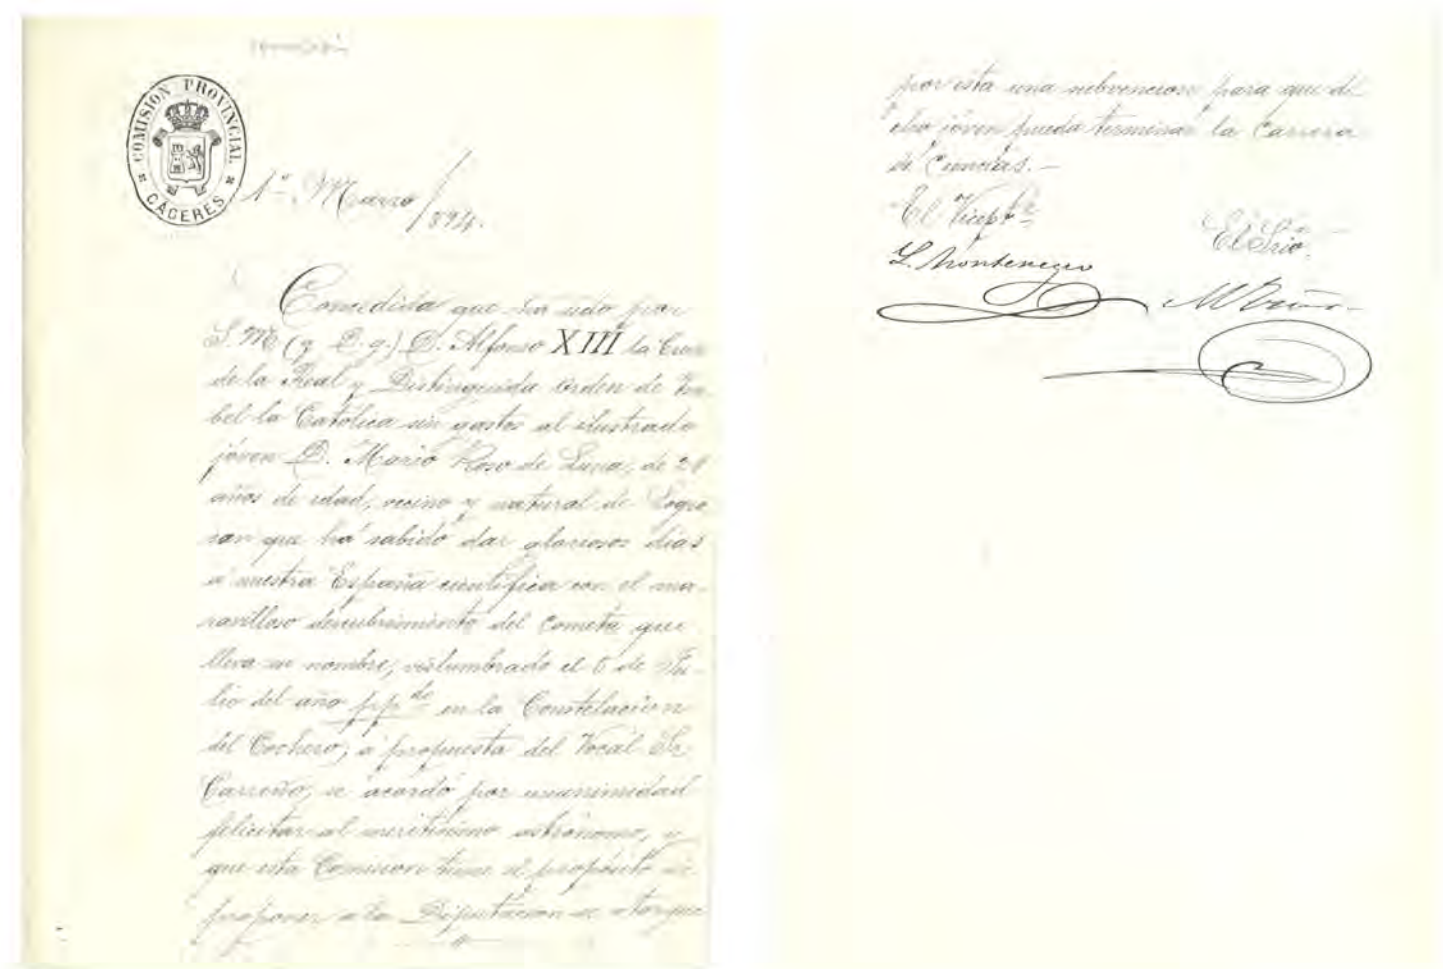 COMISION PROVINCIAL
CÁCERES
1º Marzo / 894.
Concedida que ha sido por
S. M. (q. D. g.) D. Alfonso XIII la Cruz
de la Real y Distinguida órden de Ysa-
bel la Católica sin gastos al ilustrado
jóven D. Mario Roso de Luna, de
años de edad, vecino y natural de Logro-
san que há sabido dar gloriosos dias
a nuestra España cientifica con el ma-
ravilloso descubrimiento del cometa que
lleva su nombre, vislumbrado el de Ju-
lio del año ppdo en la Constelacion
del Cochero; á propuesta del Vocal Sr
Carreño, se acordó por unanimidad
felicitar al meritisimo astrónomo, y
que esta Comision tiene el propósito de
proponer a la Diputacion se otorgue
por esta una subvencion para que di-
cho jóven pueda terminar la Carrera
de Ciencias.-
El Vicepte
El Srio.
L. Montenegro